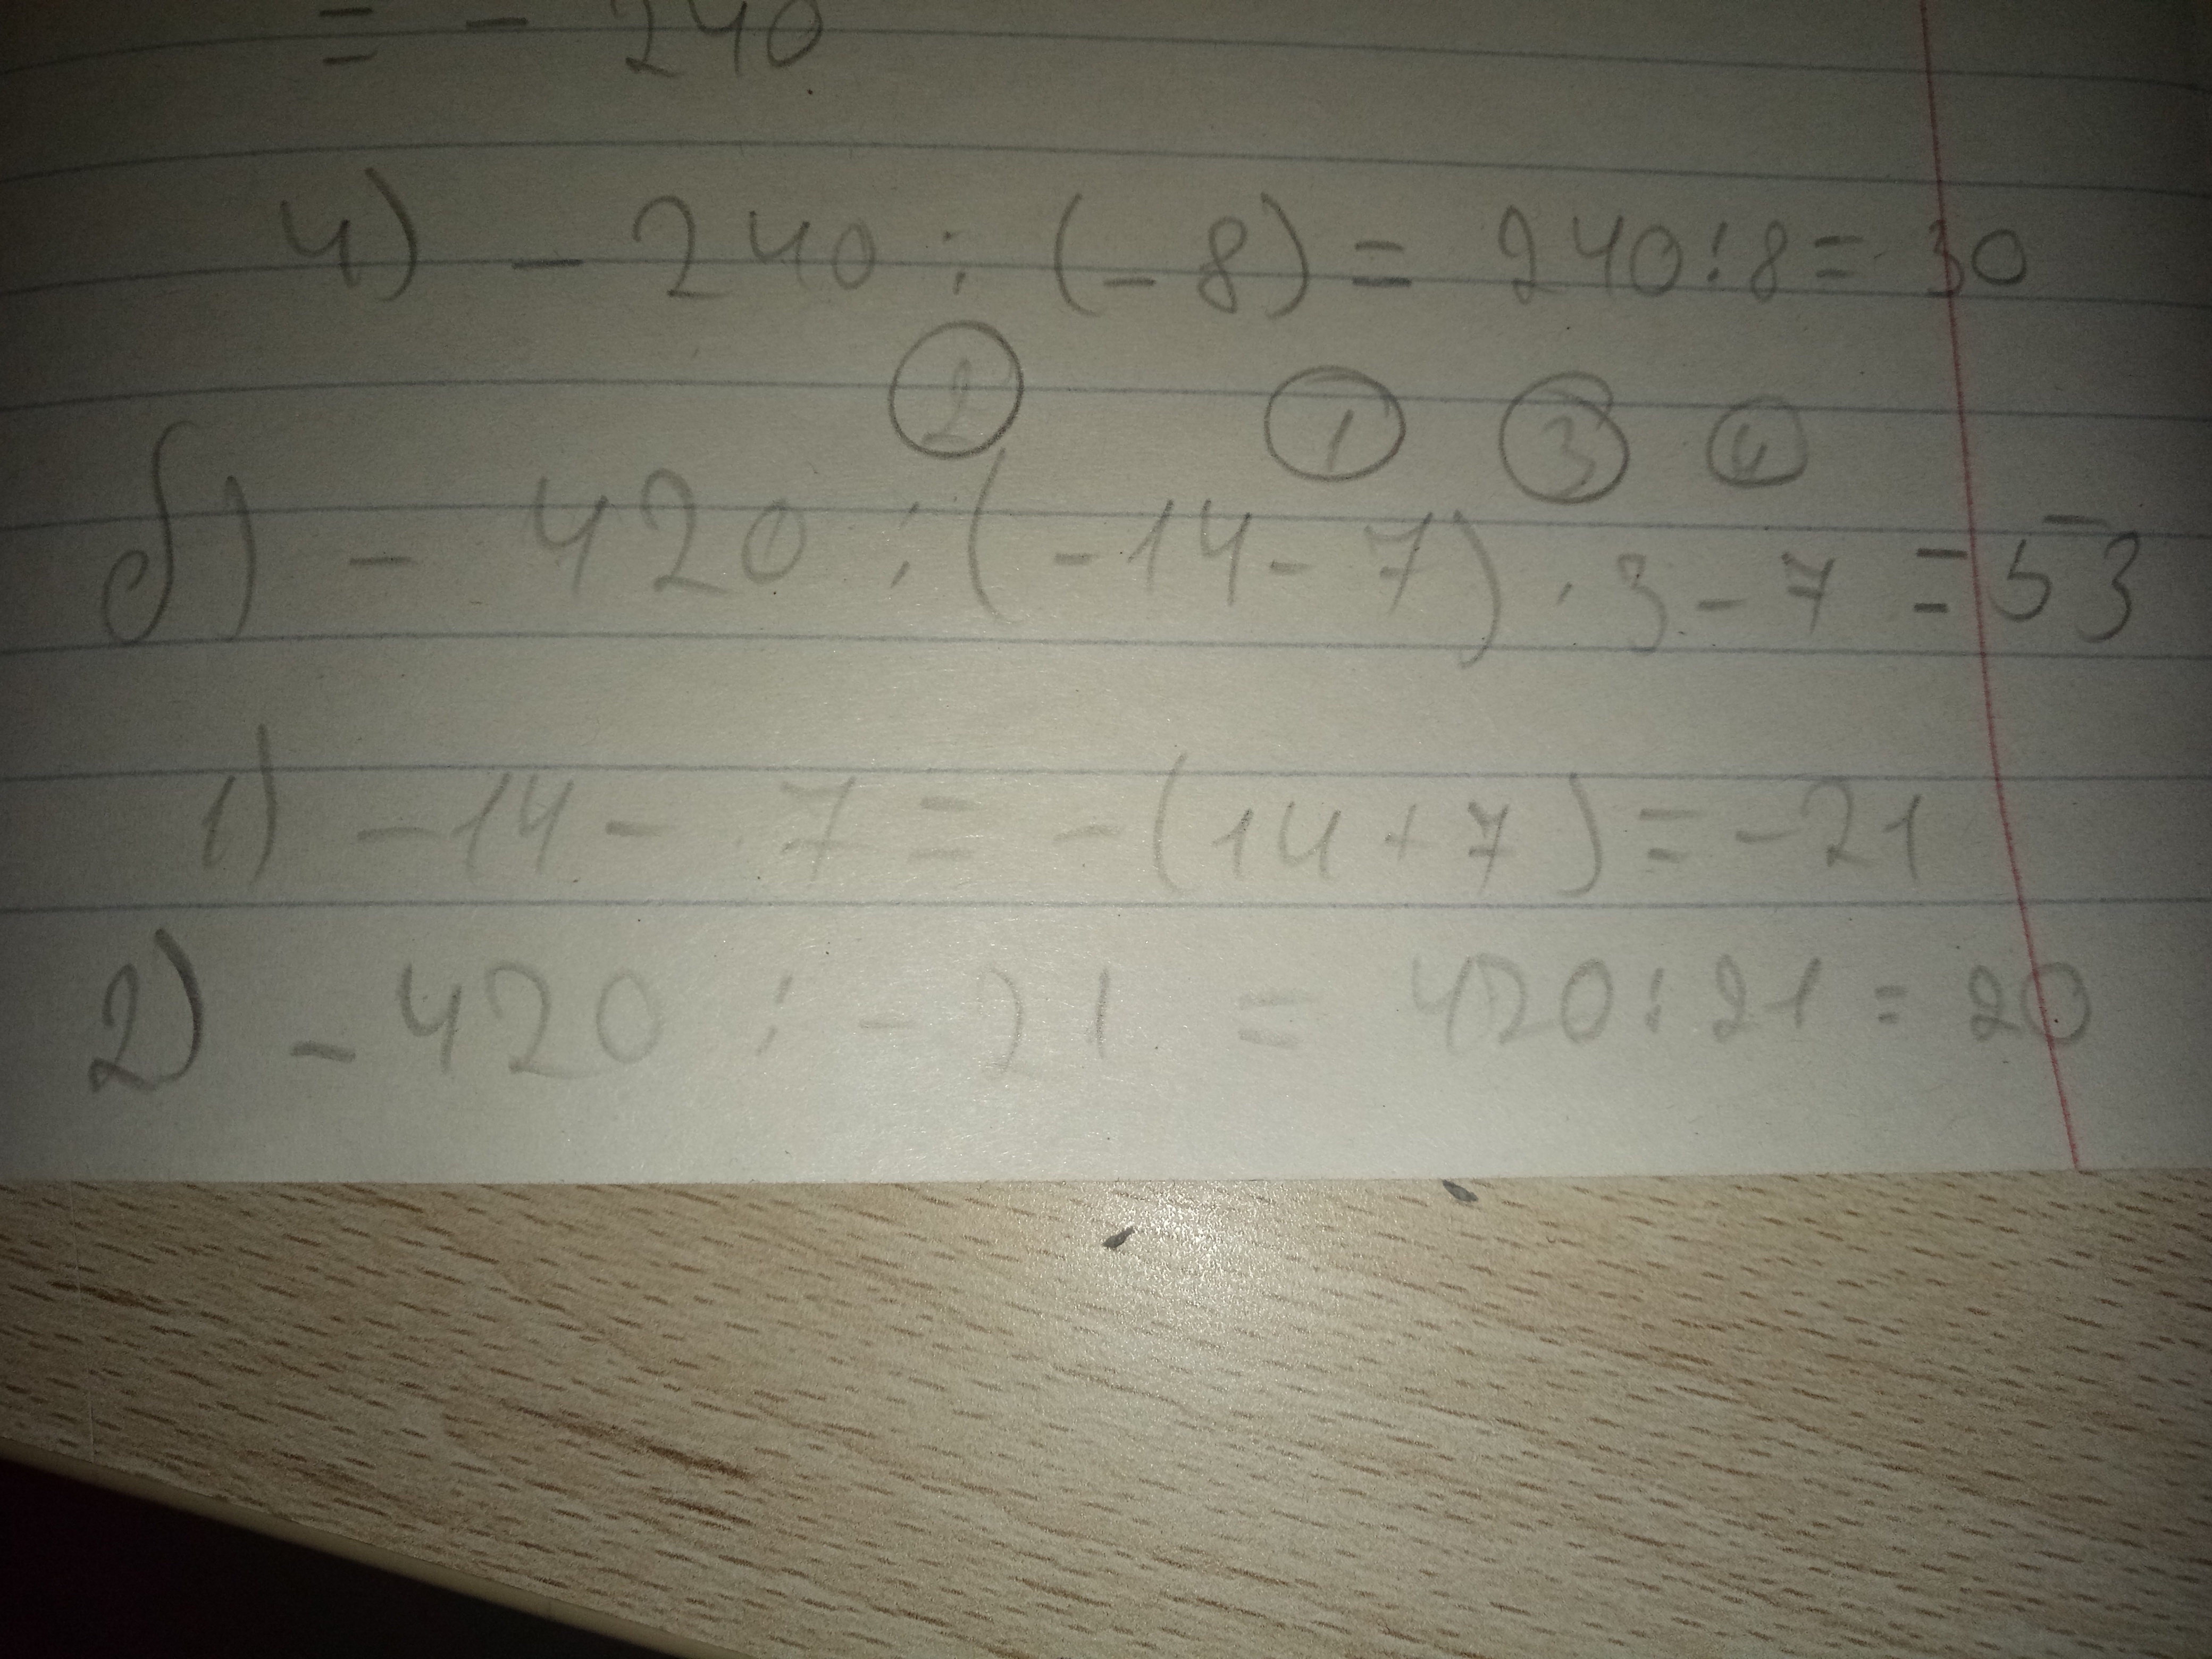 = - 240
4) - 240 : (- 8) = 240 : 8 = 30
② ① ③ ④
б) - 420 : (-14 - 7) · 3 - 7 = 53
1) -14 - 7 = -(14 + 7) = -21
2) - 420 : - 21 = 420 : 21 = 20